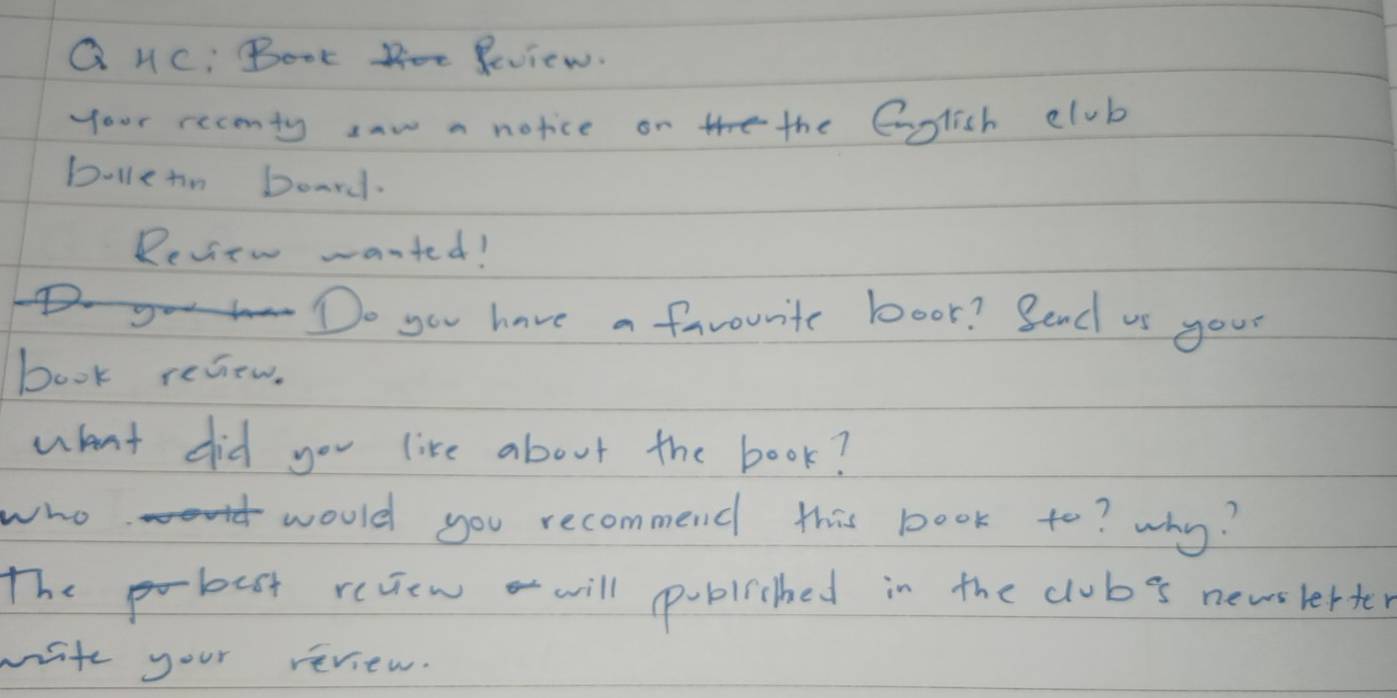 Q HC: Book Review.
Your recenty saw a notice on the English club
bulletin board.
Review wanted!
Do you have a favourite book? Send us your
book review.
what did you like about the book?
who would you recommend this book to? why?
The best review will published in the club's newsletter
write your review.